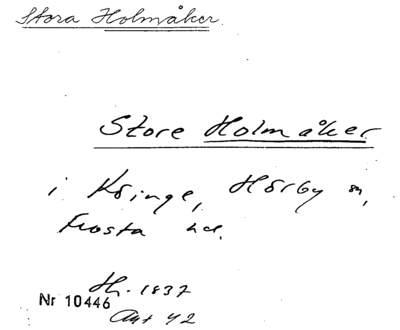 Stora Holmåker.
Store Holmåker
i Köinge, Hörby sn,
Frosta hd.
Hr. 1837
Nr 10446
Akt 42